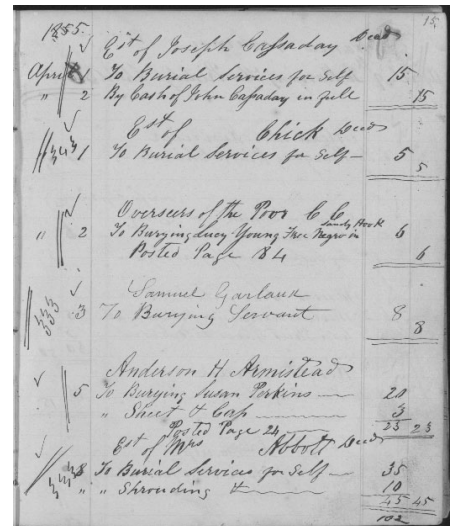 15
1855.
Est of Joseph Cassaday Decd
April 1 To Burial Services for Self 15
" 2 By Cash of John Cassaday in full 15
Est of Chick Decd
1 To Burial Services for Self — 5
5
Overseers of the Poor C C
Sandy Hook
" 2 To Burying Lucy Young Free Negro in 6
Posted Page 84 6
Samuel Garland
333 3 To Burying Servant 8
8
Anderson H Armistead
5 To Burying Susan Perkins — 20
" Sheet & Cap — 3
Posted Page 24 23 23
Est of Mrs Abbott Decd
To Burial Services for Self — 35
" Shrouding & — 10
45 45
102